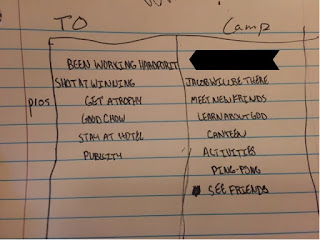 TO Camp
BEEN WORKING HARD FOR IT
SHOT AT WINNING JACOB WILL BE THERE
pros GET ATROPHY MEET NEW FRINDS
GOOD CHOW LEARN ABOUT GOD
STAY AT HOTEL CANTEEN
PUBLICITY ACTIVITIES
PING-PONG
SEE FRIENDS